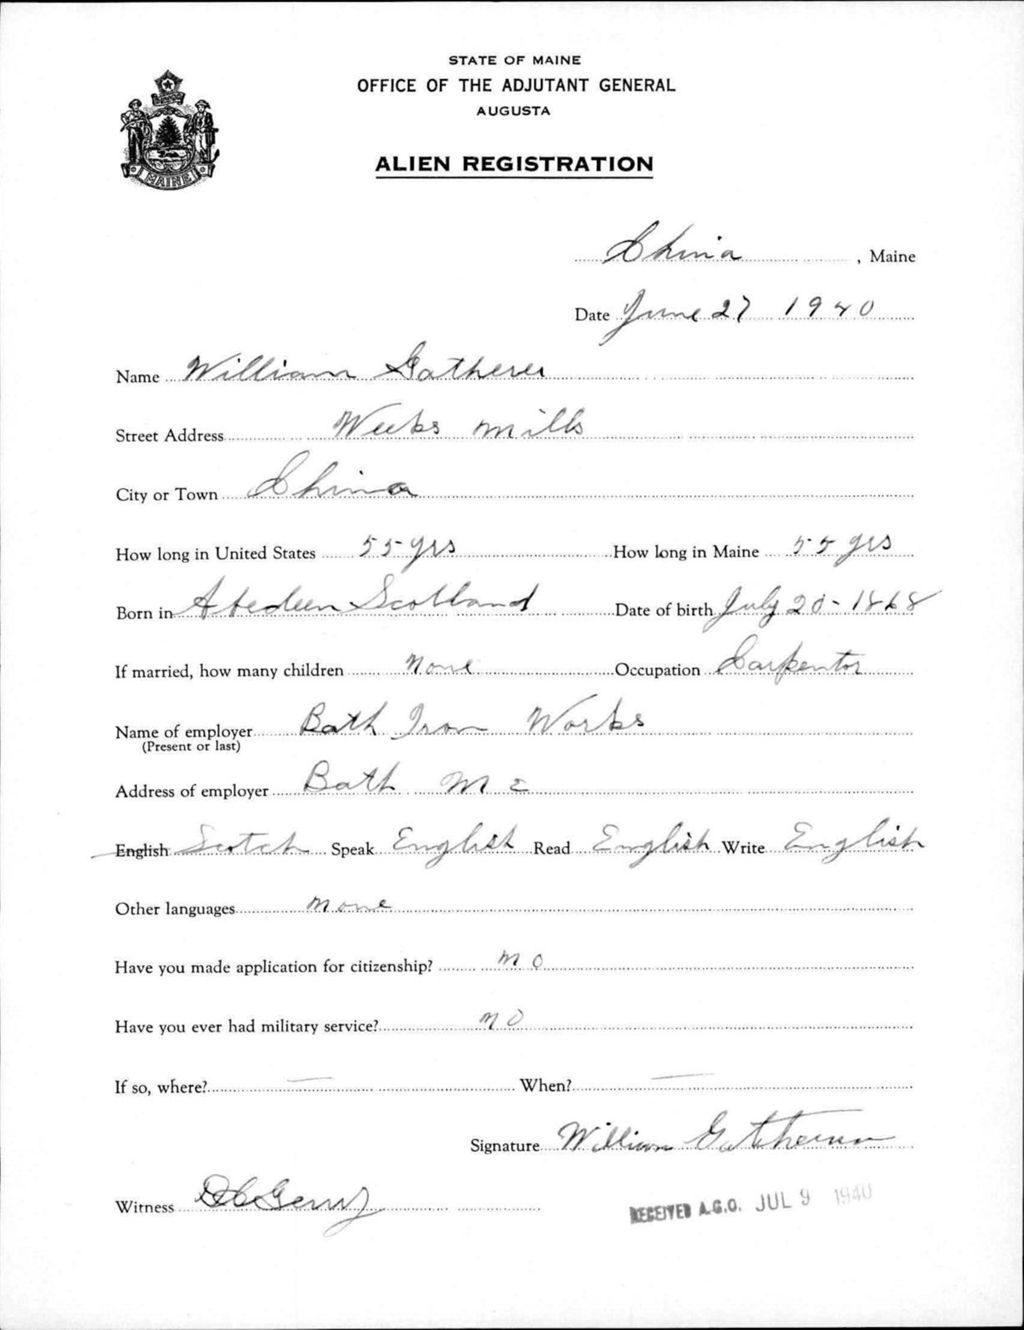 STATE OF MAINE
OFFICE OF THE ADJUTANT GENERAL
AUGUSTA
ALIEN REGISTRATION
MAINE
China, Maine
Date June 27 1940
Name William Gatherer
Street Address Weeks Mills
City or Town China
How long in United States 55 yrs How long in Maine 55 yrs
Born in Abedeen Scotland Date of birth July 20-1868
If married, how many children None Occupation Carpentor
Name of employer Bath Iron Works
(Present or last)
Address of employer Bath Me
English Scotch Speak English Read English Write English
Other languages none
Have you made application for citizenship? no
Have you ever had military service? no
If so, where? — When? —
Signature William Gatherer
Witness
RECEIVED A.G.O. JUL 9 1940